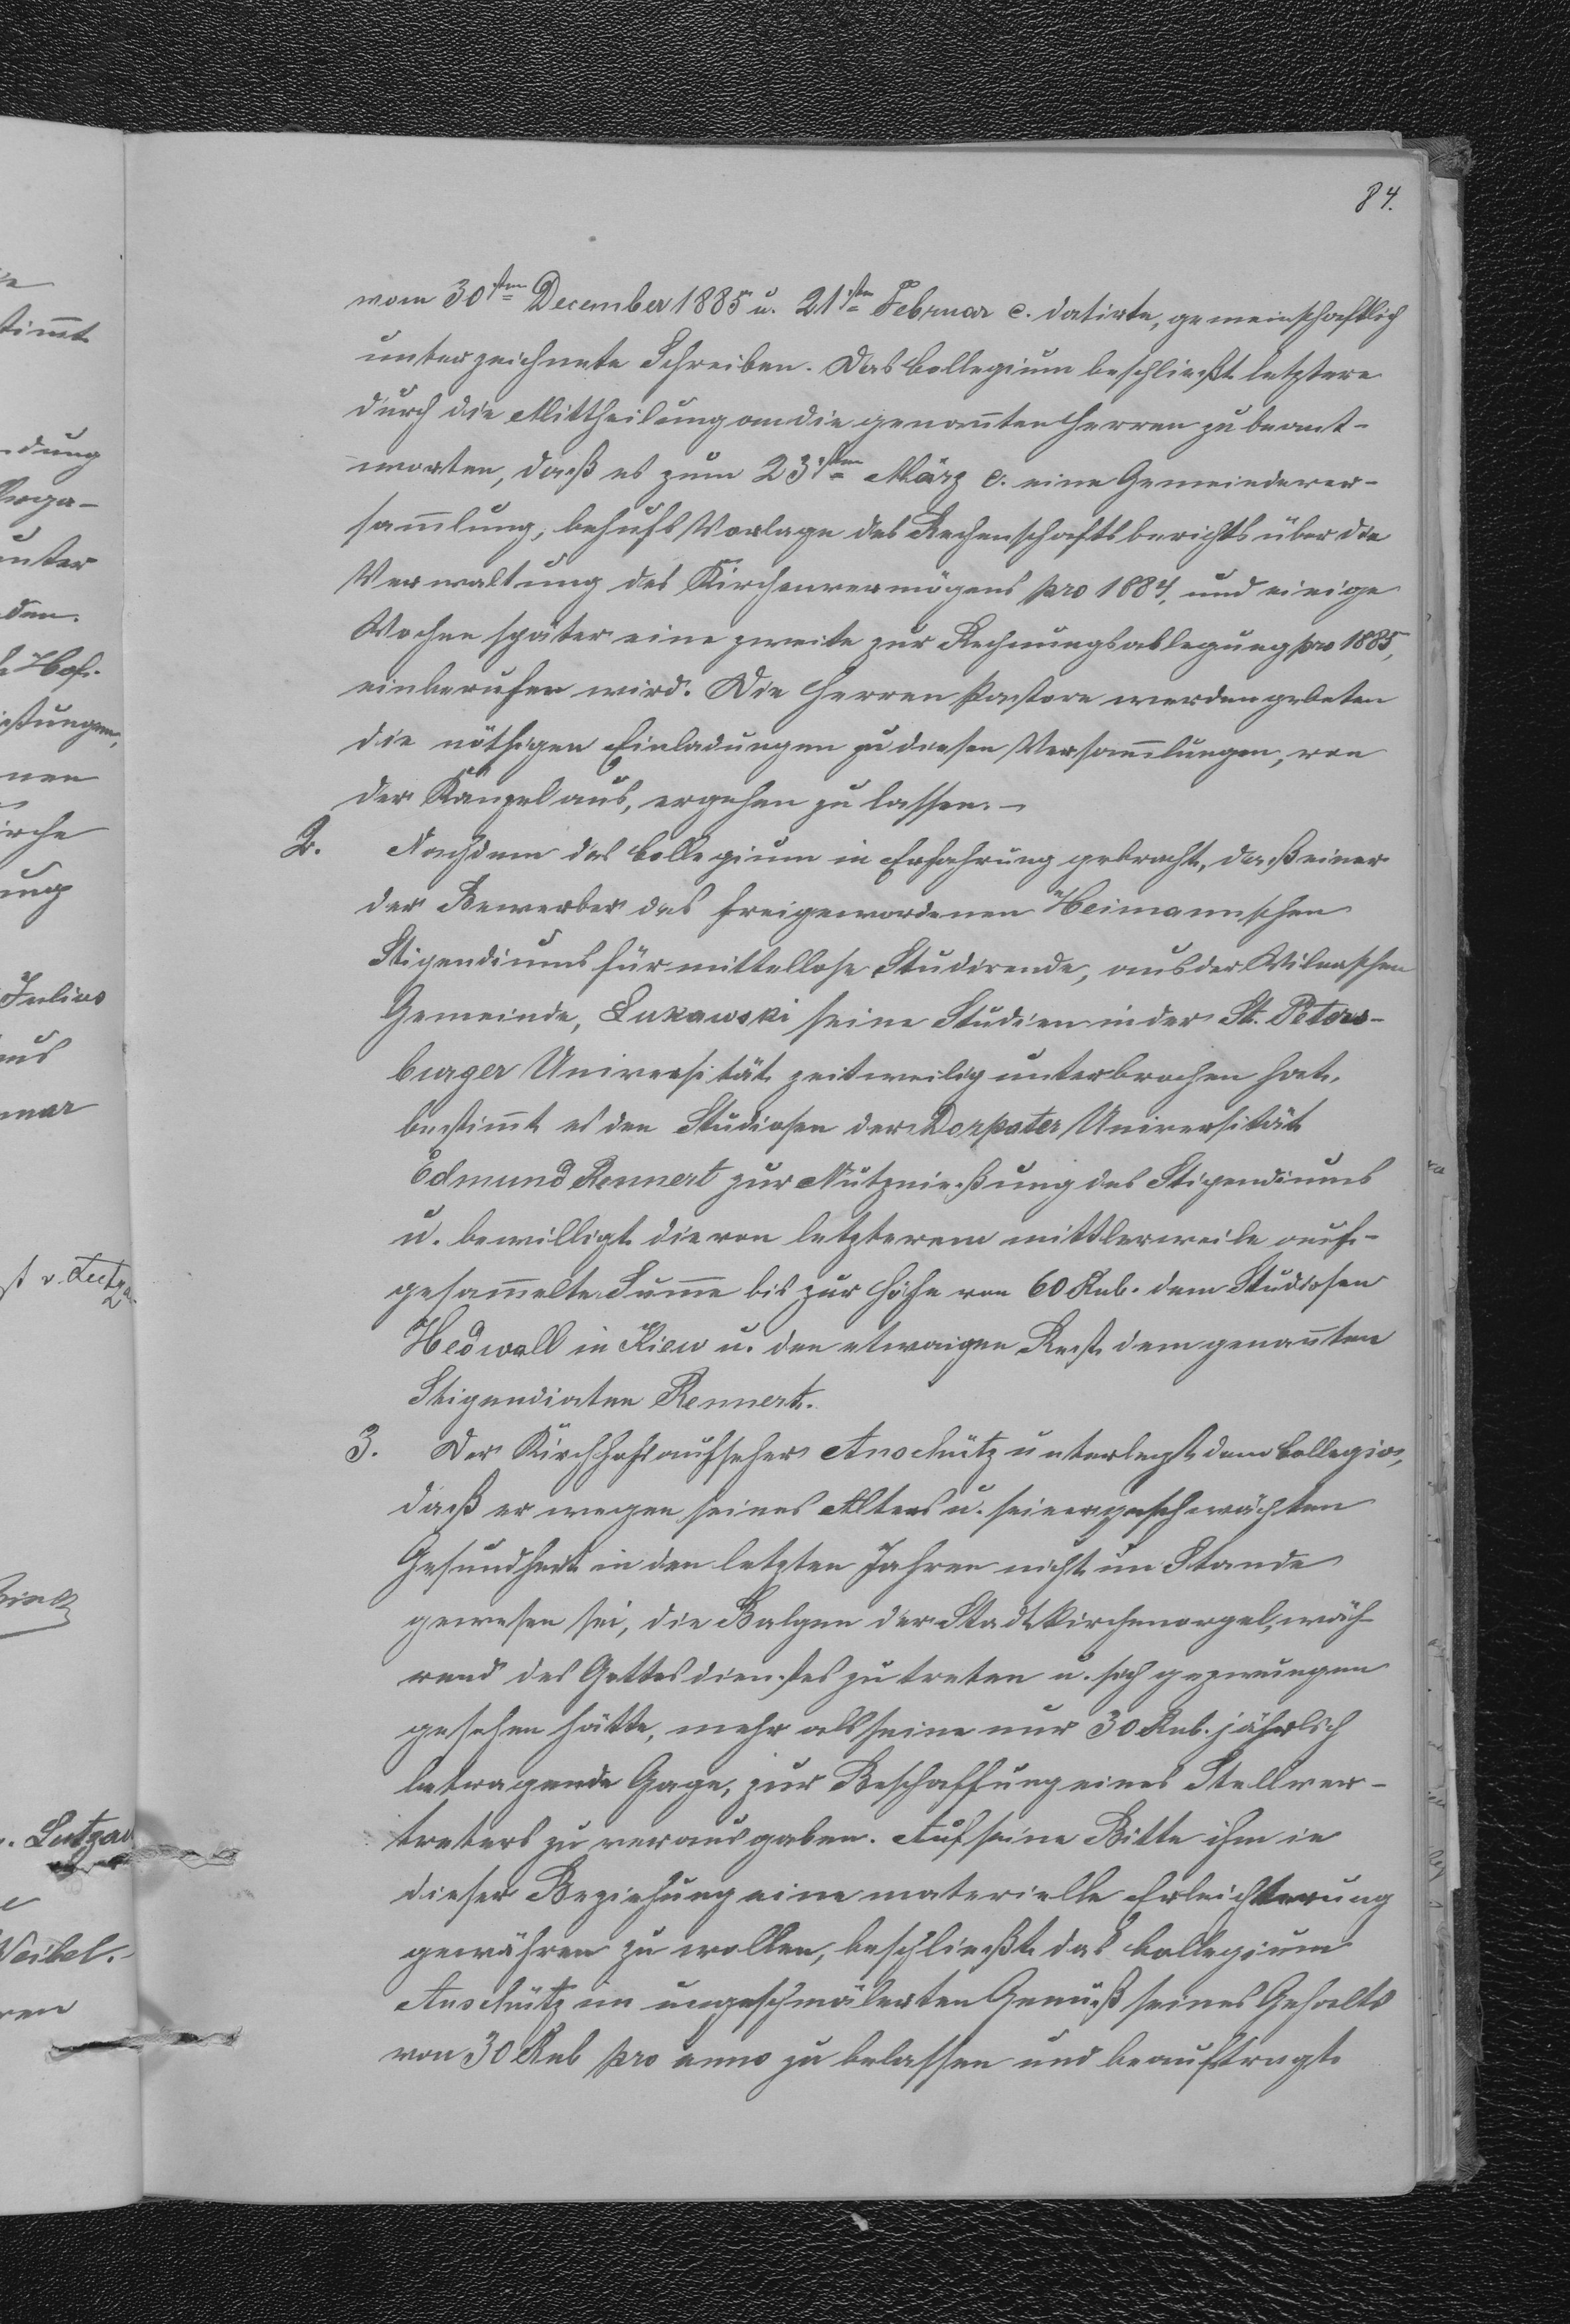 84.
vom 30sten December 1885 u. 21sten Februar c. datirte, gemeinschaftlich
unterzeichnete Schreiben. Das Collegium beschließt letztere
durch die Mittheilung an die genañten Herren zu beant-
worten, daß es zum 23sten März c. eine Gemeindever-
sam̃lung, behufs Vorlage des Rechenschaftsberichts über die
Verwaltung des Kirchenvermögens pro 1884, und einige
Wochen später eine zweite zur Rechnungsablegung pro 1885,
einberufen wird. Die Herren Pastore werden gebeten
die nöthigen Einladungen zu diesen Versam̃lungen, von
der Kanzel aus, ergehen zu lassen. –
2. Nachdem das Collegium in Erfahrung gebracht, daß einer
der Bewerber des freigewordenen Heimannschen
Stipendiums für mittellose Studirende, aus der Wilnaschen
Gemeinde, Lukawski seine Studien in der St. Peters-
burger Universität zeitweilig unterbrochen hat,
bestim̃t es den Studiosen der Dorpater Universität
Edmund Rennert zur Nutznießung des Stipendiums
u. bewilligt die von letzterem mittlerweile auf-
gesam̃elte Sum̃e bis zur Höhe von 60 Rub. dem Studiosen
Hedwall in Kiew u. den etwaigen Rest dem genañten
Stipendiaten Rennert.
3. Der Kirchhofsaufseher Anschütz unterlegt dem Collegio,
daß er wegen seines Alters u. seiner geschwächten
Gesundheit in den letzten Jahren nicht im Stande
gewesen sei, die Balgen der Stadtkirchenorgel, wäh-
rend des Gottesdienstes zu treten u. sich gezwungen
gesehen hätte, mehr als seine nur 30 Rub. jährlich
betragende Gage, zur Beschaffung eines Stellver-
treters zu verausgaben. Auf seine Bitte ihm in
dieser Beziehung eine materielle Erleichterung
gewähren zu wollen, beschließt das Collegium
Anschütz im ungeschmälerten Genuß seines Gehalts
von 30 Rub pro anno zu belassen und beauftragt